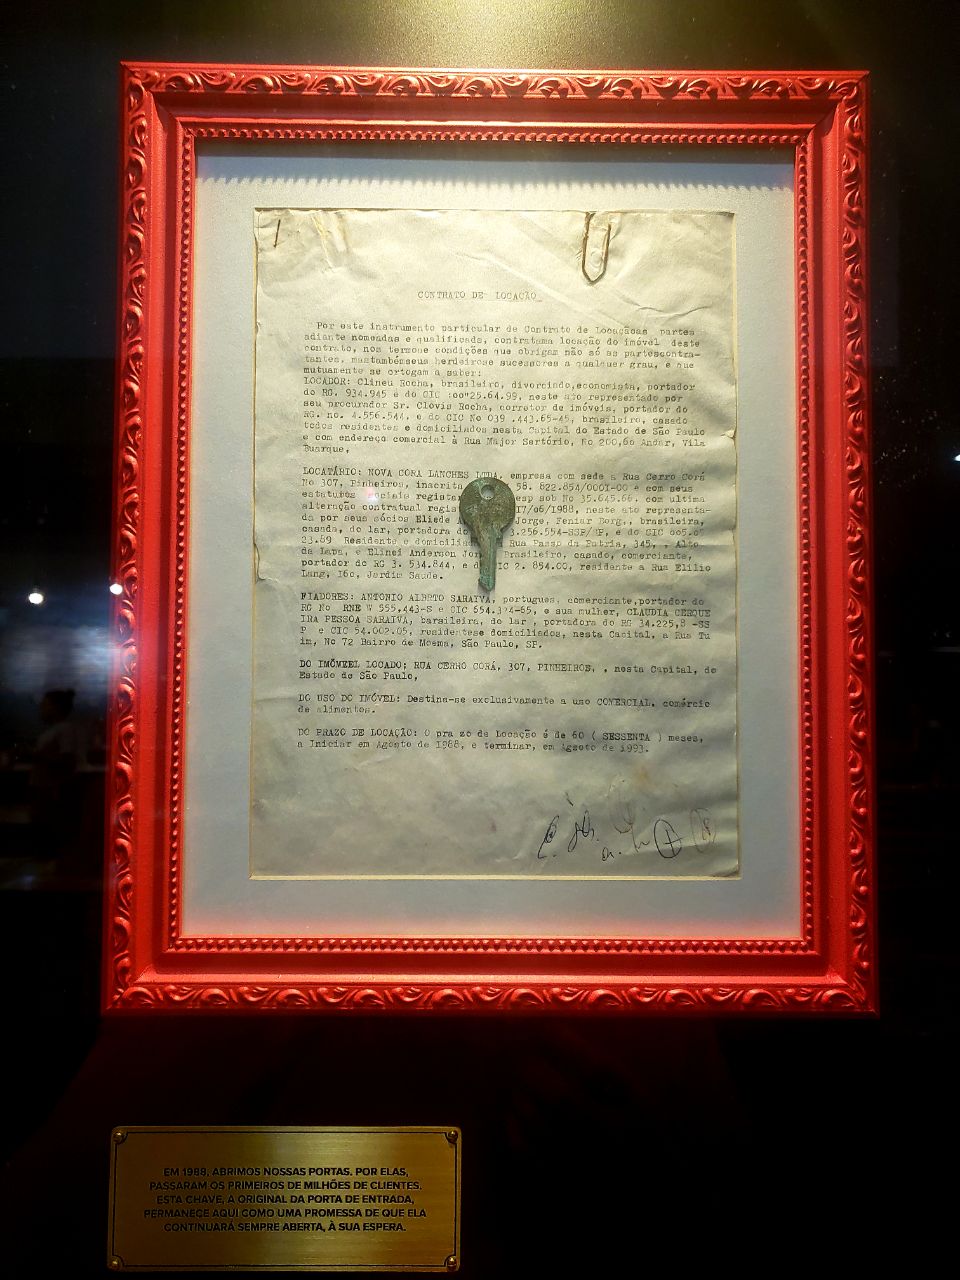 CONTRATO DE LOCAÇÃO
Por este instrumento particular de Contrato de Locaçãoas partes
adiante nomeadas e qualificada, contratama locação do imóvel deste
contrato, nos termose condições que obrigam não só as partescontra-
tantes, mastambémseus herdeirose sucessores a qualquer grau, e que
mutuamente se ortogam a saber:
LOCADOR: Clineu Rocha, brasileiro, divorciado,economista, portador
do RG. 934.945 e do CIC :00"25.64.99, neste ato representado por
seu procurador Sr. Clóvis Rocha, corretor de imóveis, portador do
RG. no. 4.556.544, e do CIC No 039 .443.65-45, brasileiro, casado
todos residentes e domiciliados nesta Capital do Estado de São Paulo
e com endereço comercial à Rua Major Sertório, No 200,6o Andar, Vila
Buarque,
LOCATÁRIO: NOVA CORA LANCHES LTDA, empresa com sede a Rua Cerro Corá
No 307, Pinheiros, inscrita 58. 822.854/0001-00 e com seus
estatutos sociais registar esp sob No 35.645.66. com ultima
alteração contratual regist 17/06/1988, neste ato representa-
da por seus sócios Eliede Jorge, Feniar Borg,, brasileira,
casada, do lar, portadora do 3.256.554-SSP/SP, e do CIC 005.0
23.89 Residente e domicilia Rua Passo da Patria, 345, , Alto
da Lapa, e Elinei Anderson Jor Brasileiro, casado, comerciante,
portador do RG 3. 534.844, e d CIC 2. 854.00, residente a Rua Elilio
Lang, 16o, Jardim Saude.
FIADORES: ANTONIO ALBRTO SARAIVA, portugues, comerciante,portador do
RG No RNE W 555.443-S e CIC 654.324-65, e sua mulher, CLAUDIA CERQUE
IRA PESSOA SARAIVA, barsileira, do lar , portadora do RG 34.225,8 -SS
P e CIC 54.002.05, residentese domiciliados, nesta Cacital, a Rua Tu
im, No 72 Bairro de Moema, São Paulo, SP.
DO IMÕVEEL LOCADO; RUA CERRO CORÁ, 307, PINHEIROS, , nesta Capital, do
Estado de São Paulo,
DO USO DO IMÓVEL: Destina-se exclusivamente a uso COMERCIAL. comércio
de alimentos.
DO PRAZO DE LOCAÇÃO: O pra zo de Locação é de 60 ( SESSENTA ) meses,
a Iniciar em Agosto de 1988, e terminar, em Agsoto de 1993.
EM 1988, ABRIMOS NOSSAS PORTAS. POR ELAS,
PASSARAM OS PRIMEIROS DE MILHÕES DE CLIENTES.
ESTA CHAVE, A ORIGINAL DA PORTA DE ENTRADA,
PERMANECE AQUI COMO UMA PROMESSA DE QUE ELA
CONTINUARÁ SEMPRE ABERTA, À SUA ESPERA.